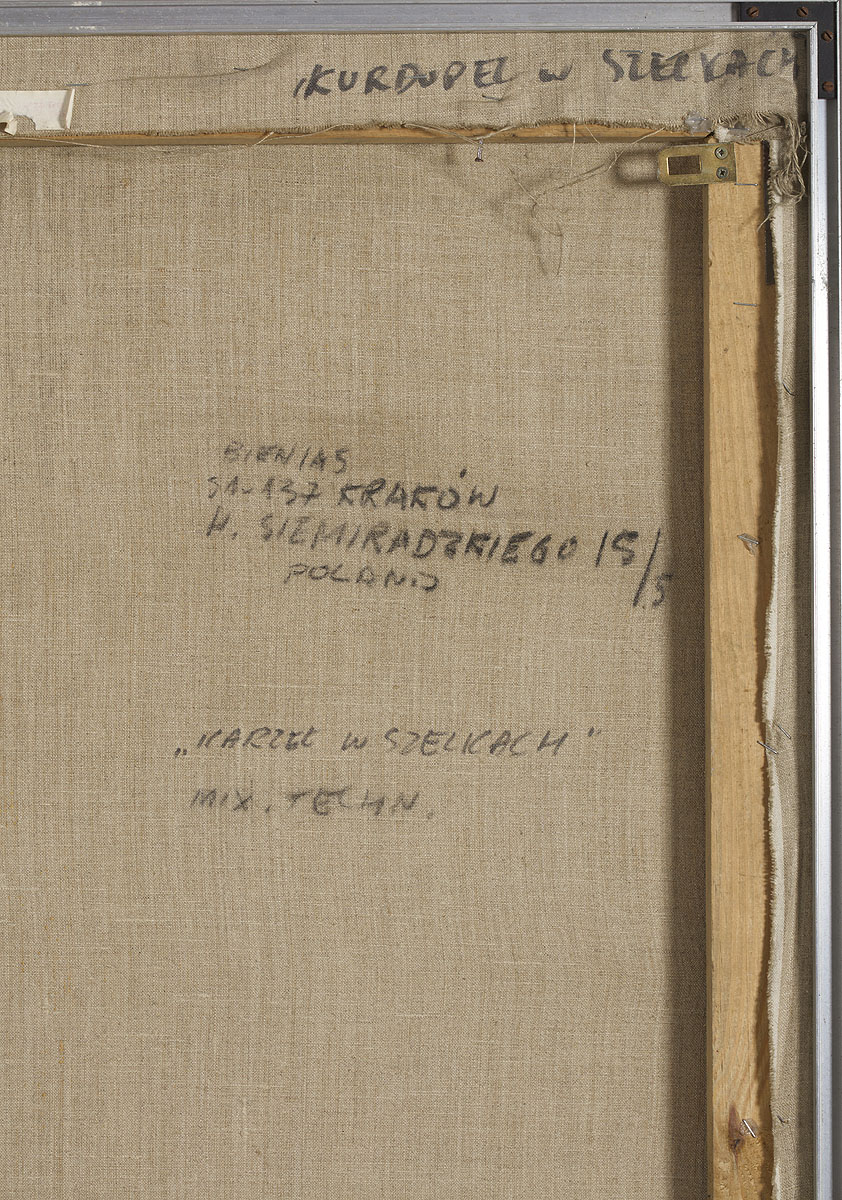 "KURDUPEL W SZELKACH
BIENIAS
31-137 KRAKÓW
H. SIEMIRADZKIEGO 15/5
POLAND
„KARZEŁ W SZELKACH"
MIX. TECHN.